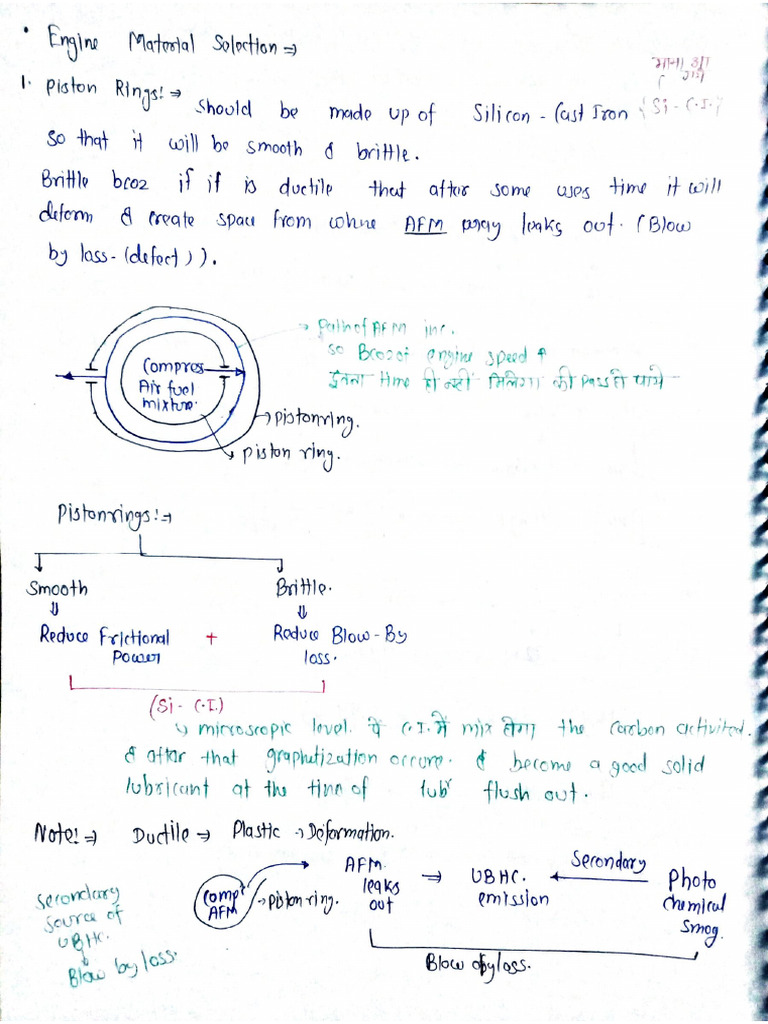 • Engine Material Selection ⇒
1. Piston Rings!→ Should be made up of Silicon - Cast Iron (Si - C.I.)
so that it will be smooth & brittle.
Brittle bcoz if if is ductile that after some uses time it will
deform & create space from whne AFM may leaks out. (Blow
by loss - (defect)).
→ Path of AFM inc.
so Bcoz of engine speed ↑
इतना time ही नहीं मिलेगा की pass हो पाये
Compres
Air fuel
mixture.
→ pistonring.
→ piston ring.
Pistonrings!→
Smooth Brittle.
⇓ ⇓
Reduce Frictional + Reduce Blow-By
Power loss.
(Si - C.I.)
↳ microscopic level पे C.I. में mix होगा the carbon activited.
& after that graphitization occure. & become a good solid
lubricant at the time of lubr flush out.
Note!⇒ Ductile → Plastic → Deformation.
Compr AFM → piston ring.
AFM leaks out → UBHC. emission ← Secondary Photo chemical smog.
Blow by loss.
Secondary
source of
UBHC.
↓
Blow by loss.